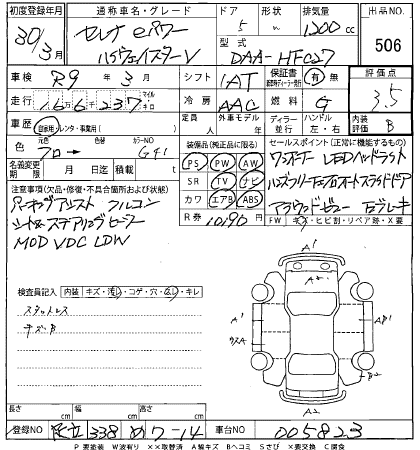 初度登録年月 通称車名・グレード ドア 形状 排気量 出品NO.
30/3月 セレナ eパワー 5 W 1200cc 506
ハイウェイスターV DAA-HFC27
車検 R9年3月 シフト IAT 保証書 有 無 評価点 3.5
走行 166237 マイル キロ 冷房 AAC 燃料 G
車歴 自家用・レンタ・事業用( ) 定員 人 外車モデル 年 ディーラー 並行 ハンドル 左・右 内装評価 B
色 元色 クロ→ カラーNO G41
名義変更期限 月 日迄 積載量 t
装備品(純正品に限る)
PS PW AW
SR TV ナビ
カワ エアB ABS
R券 10190円
セールスポイント(正常に機能するもの)
ワンオーナー LEDヘッドライト
ハンズフリー両オートスライドドア
アラウンドビュー Eブレーキ
FW キズ・ヒビ割・リペア跡・X要
注意事項(欠品・修復・不具合箇所および状態)
パーキングアシスト フルコン
シート&ステアリングヒーター
MOD VDC LDW
検査員記入 内装 キズ・汚レ・コゲ・穴・凸レ・キレ
スタットレス
キズB
A1
A1
ワスA
A1
B1
A2
B2
A2
長さ cm 幅 cm 高さ cm
登録NO 足立 338 め 7-14 車台NO 005823
P 要塗装 W波有り ××取替済 A線キズ Bヘコミ Sさび ×要交換 C腐食